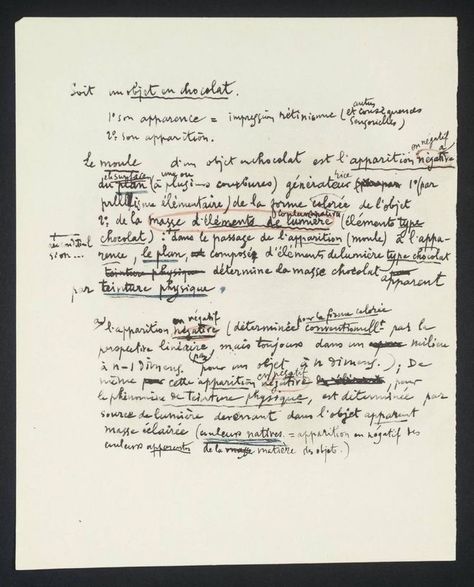 Soit un objet en chocolat.
1° son apparence = impression rétinienne (et autres conséquences
sensorielles)
2° son apparition.
Le moule d'un objet en chocolat est l'apparition négative en négatif
du plan (à plusieurs courbures) générateur 1° (par
élémentaire) de la forme colorée de l'objet
2° de la masse d'éléments de lumière (éléments type
chocolat) : dans le passage de l'apparition (moule) à l'appa-
rence, le plan composé d'éléments de lumière type chocolat
teinture physique détermine la masse chocolat apparent
par teinture physique.
l'apparition négative en négatif (déterminée pour la forme colorée conventionellt par la
perspective linéaire, mais toujours dans un milieu
à n-1 dimens. pour un objet à n dimens.); De
même cette apparition négative en négatif, pour
le phénomène de teinture physique, est déterminée par
source de lumière devenant dans l'objet apparent
masse éclairée (couleurs natives = apparition en négatif des
couleurs apparentes de la matière des objets.)